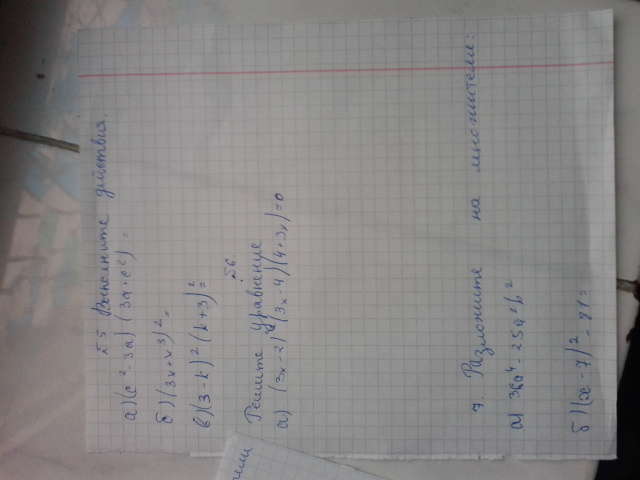 №5 Выполните действия.
а) (c² - 3a) (3a + c²) =
б) (3x + x3)² =
в) (3 - k)² (k + 3)² =
№6
Решите уравнение
а) (3x - 2)² - (3x - 4) (4 + 3x) = 0
7. Разложите на множители:
а) 36a⁴ - 25a²b²
б) (x - 7)² - 81 =